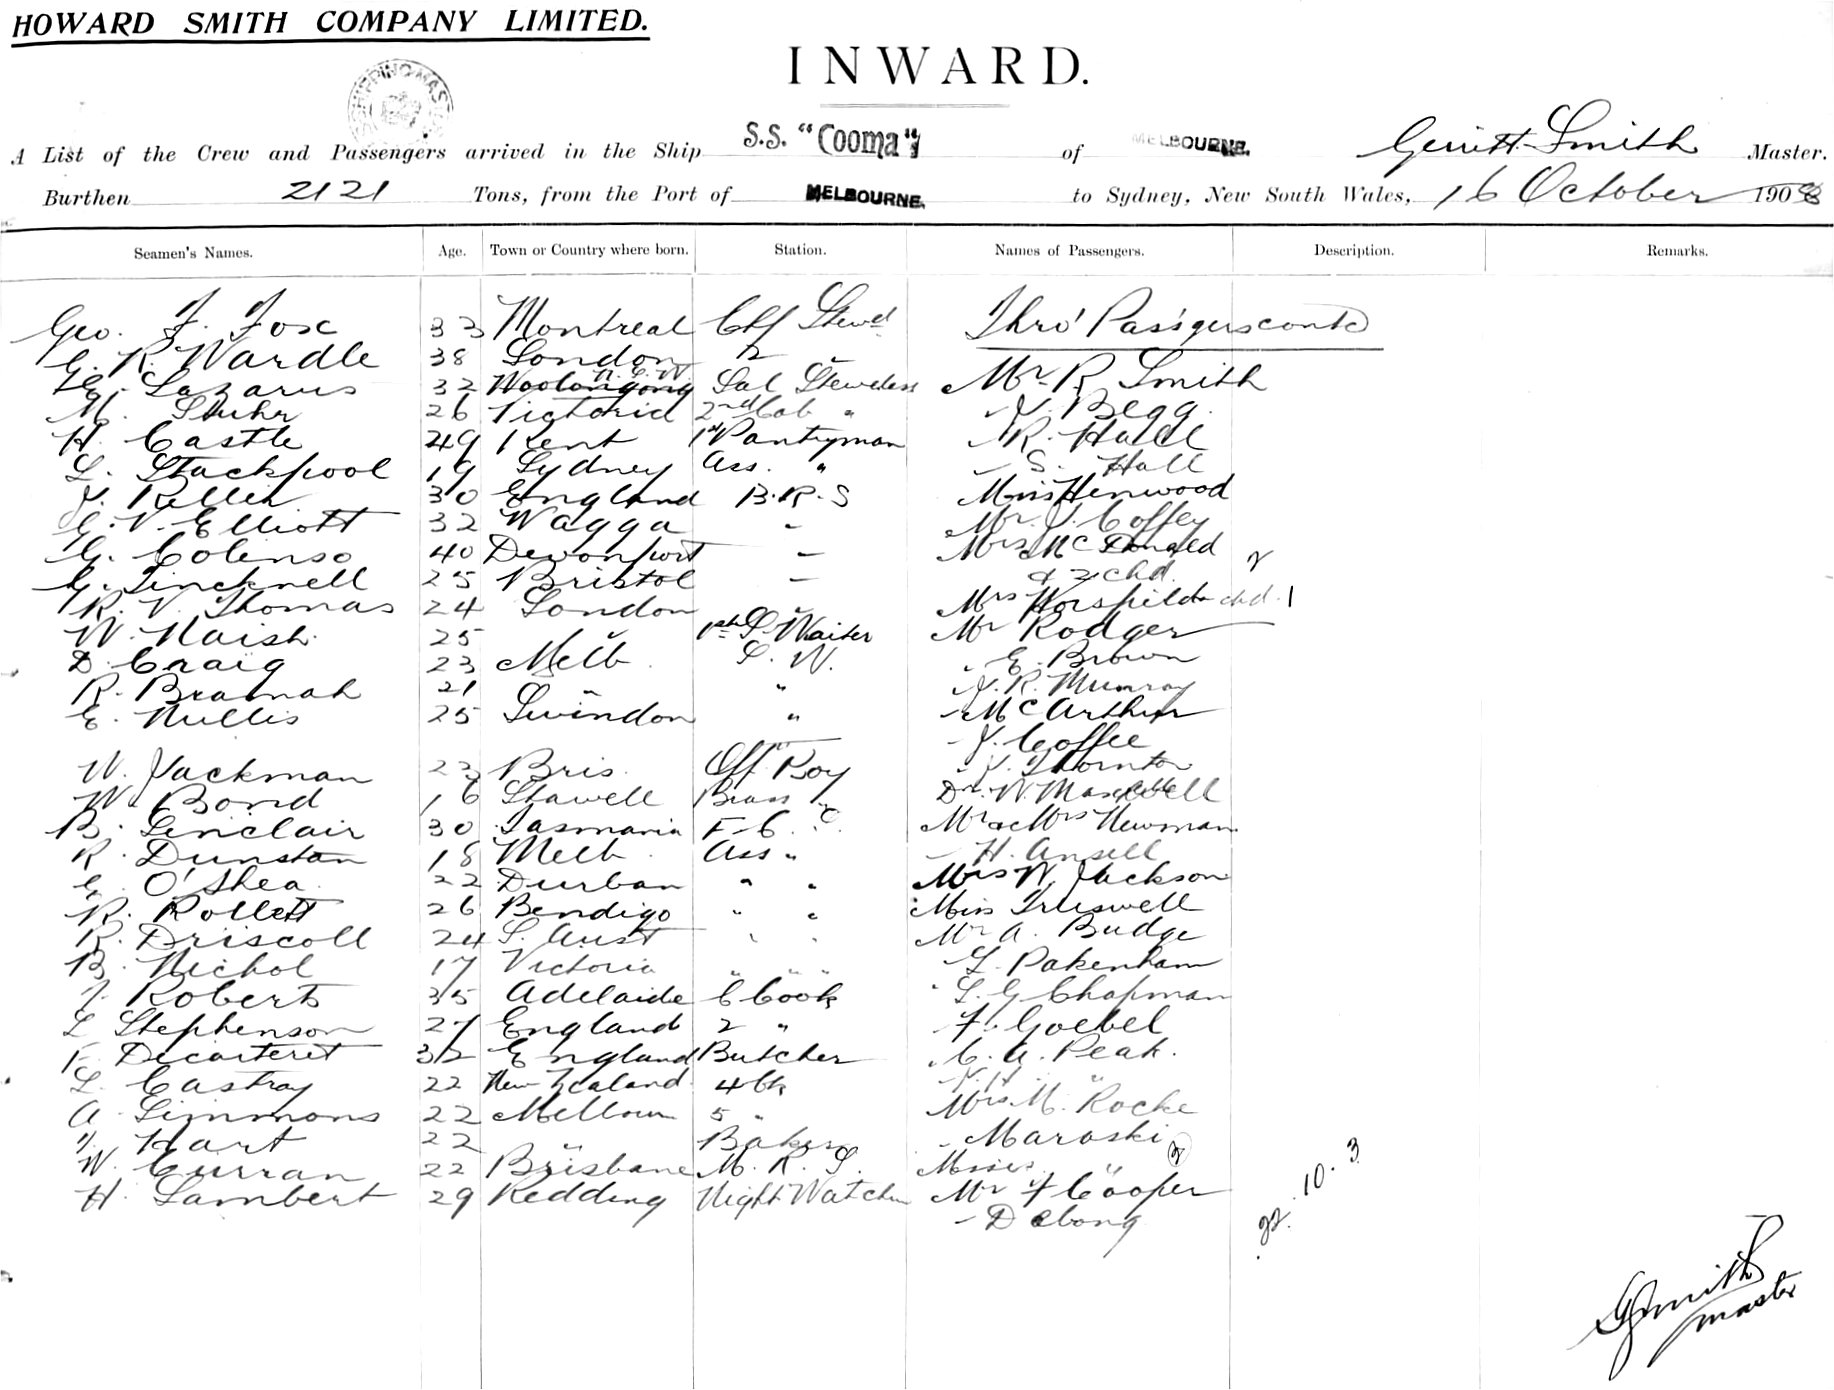 HOWARD SMITH COMPANY LIMITED.
INWARD.
A List of the Crew and Passengers arrived in the Ship S.S. "Cooma" of MELBOURNE. Gerritt Smith Master.
Burthen 2121 Tons, from the Port of MELBOURNE. to Sydney, New South Wales, 16 October 1908
Seamen's Names. Age. Town or Country where born. Station. Names of Passengers. Description. Remarks.
Geo. F. Fox 33 Montreal Chf Stewd Thro' Pas'gers contd
G. R. Wardle 38 London 2 "
G. Lazarus 32 Woolongong N.S.W. Sal Stewdess Mr R. Smith
M. Stuhr 26 Victoria 2nd Cab " " J. Begg.
H. Castle 49 Kent 1st Pantryman " R. Hall
L. Stackpool 19 Sydney Ass. " " S. Hall
J. Kellih 30 England B.R.S Miss Henwood
G. V. Elliott 32 Wagga " Mr. J. Coffey
G. Colenso 40 Devonport " Mrs McDonald 2
& 2 chd.
G. Tincknell 25 Bristol "
R. V. Thomas 24 London " Mrs Horsfield chd. 1
W. Naish 25 " 1st S. Waiter Mr Rodger
D. Craig 23 Melb S. W. " E. Brown
R. Bramah 21 " " " J. R. Munray
E. Nullis 25 Swindon " " McArthur
" J. Coffee
W. Jackman 23 Bris. Off. Boy " J. Thornton
W. Bond 16 Stawell Brass " Dr. W. Maxwell
B. Sinclair 30 Tasmania F. C. S. Mr & Mrs Newman
R. Dunstan 18 Melb. Ass " " H. Ansell
G. O'Shea 22 Durban " " Mrs W. Jackson
R. Rollett 26 Bendigo " " Miss Truswell
R. Driscoll 24 S. Aust " " Mr A. Budge
B. Nichol 17 Victoria " " " " L. Pakenham
J. Roberts 35 Adelaide C Cook " L. G. Chapman
L Stephenson 27 England 2 " " F. Goebel
F. Decarteret 32 England Butcher " C. A. Peak.
L. Castray 22 New Zealand 4 Ck " J. H. "
A. Simmons 22 Melbourn 5 " Mrs. M. Rocke
J. Hart 22 " Baker " Maroski
W. Curran 22 Brisbane M. R. S. Misses " 2
H. Lambert 29 Redding Night Watchm Mr F Cooper
" D
22. 10. 3
G Smith
master